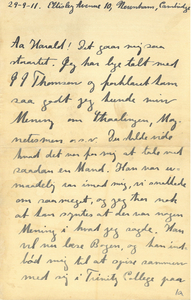 29-9-11. Eltisley Avenue 10, Newnham, Cambridge
Aa Harald! Det gaar mig saa
storartet. Jeg har lige talt med
J J Thomson og forklaret ham
saa godt jeg kunde min
Mening om Straalingen, Mag-
netismen o.s.v. Du skulde vide
hvad det var for mig at tale med
saadan en Mand. Han var
saa mod mig, vi snakkede
om saa meget, og jeg tror nok
at han syntes at der var nogen
Mening i hvad jeg sagde. Han
vil nu læse Bogen, og han ind-
bød mig til at spise sammen
med sig i Trinity College paa